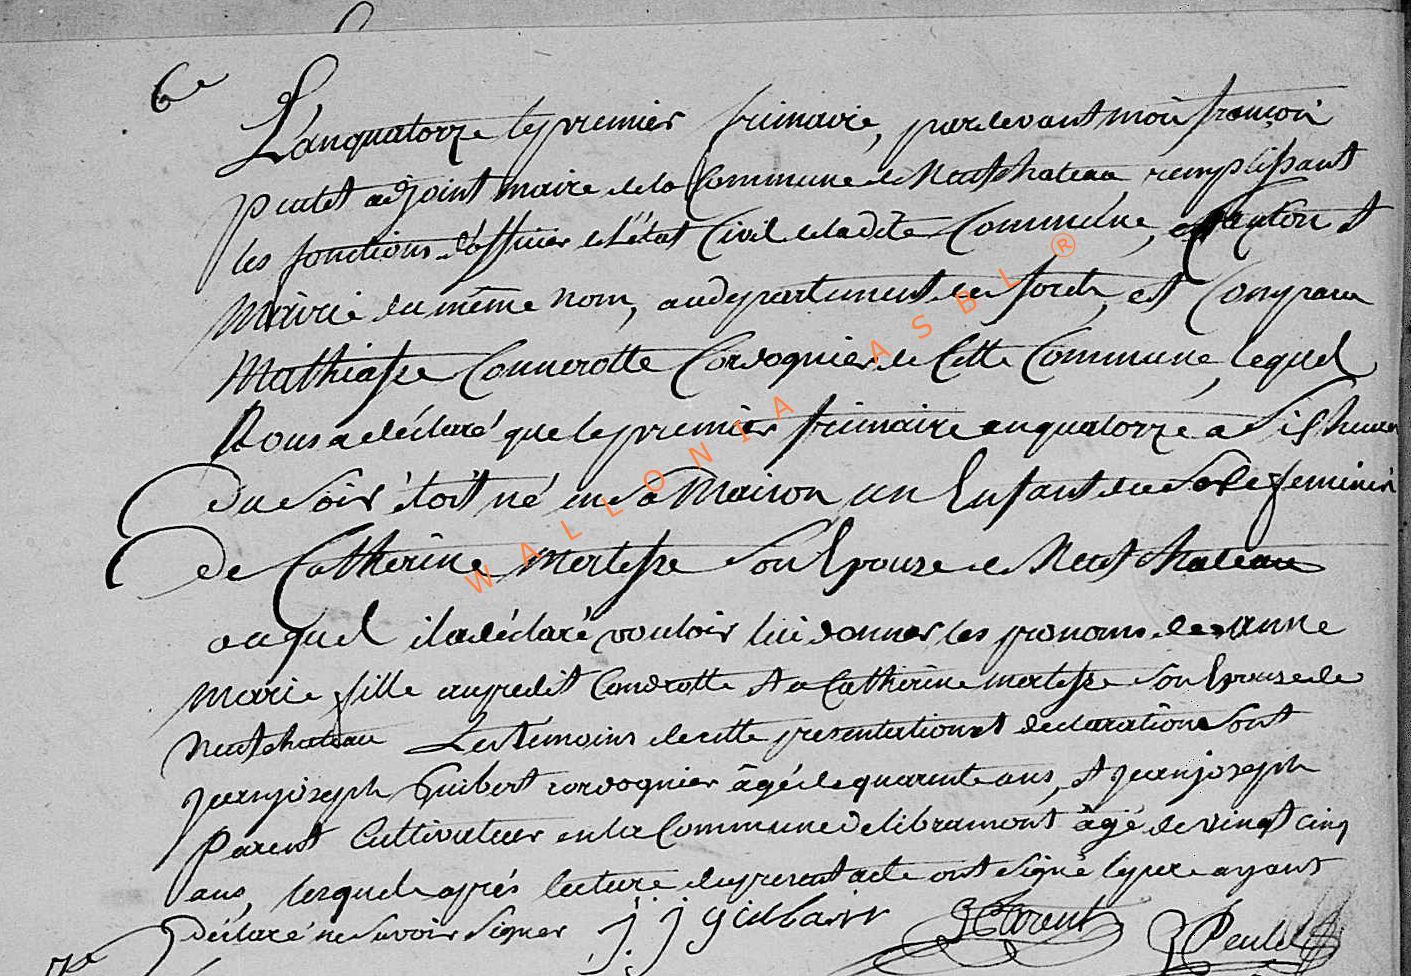 6e
L'an quatorze le premier frimaire, pardevant moi françois
Peulet adjoint maire de la Commune de Neufchateau remplissant
les fonctions d'officier de l'état Civil de ladite Commune, Canton et
Mairie du même nom, au departement des forets, est Comparu
Mathiasse Connerotte Cordognier de Cette Commune, lequel
Nous a déclaré que le premier frimaire an quatorze a Six heures
du soir étoit né en sa Maison un Enfant du sexe feminin
de Catherine Mertesse son Epouse de Neufchateau
auquel il a déclaré vouloir lui donner les pronoms de anne
Marie fille au predit Conerotte et a Catherine mertesse son Epouse de
neufchateau Les temoins de cette presentation et declaration sont
jean joseph Guibert cordognier âgé de quarente ans, et jean joseph
Parent Cultivateur en la Commune de libramont âgé de vingt cinq
ans, lesquels aprés lecture du present acte ont signé le pere ayant
déclaré ne savoir signer j. j Parent Peulet
7e
WALLONIA ASBL ®